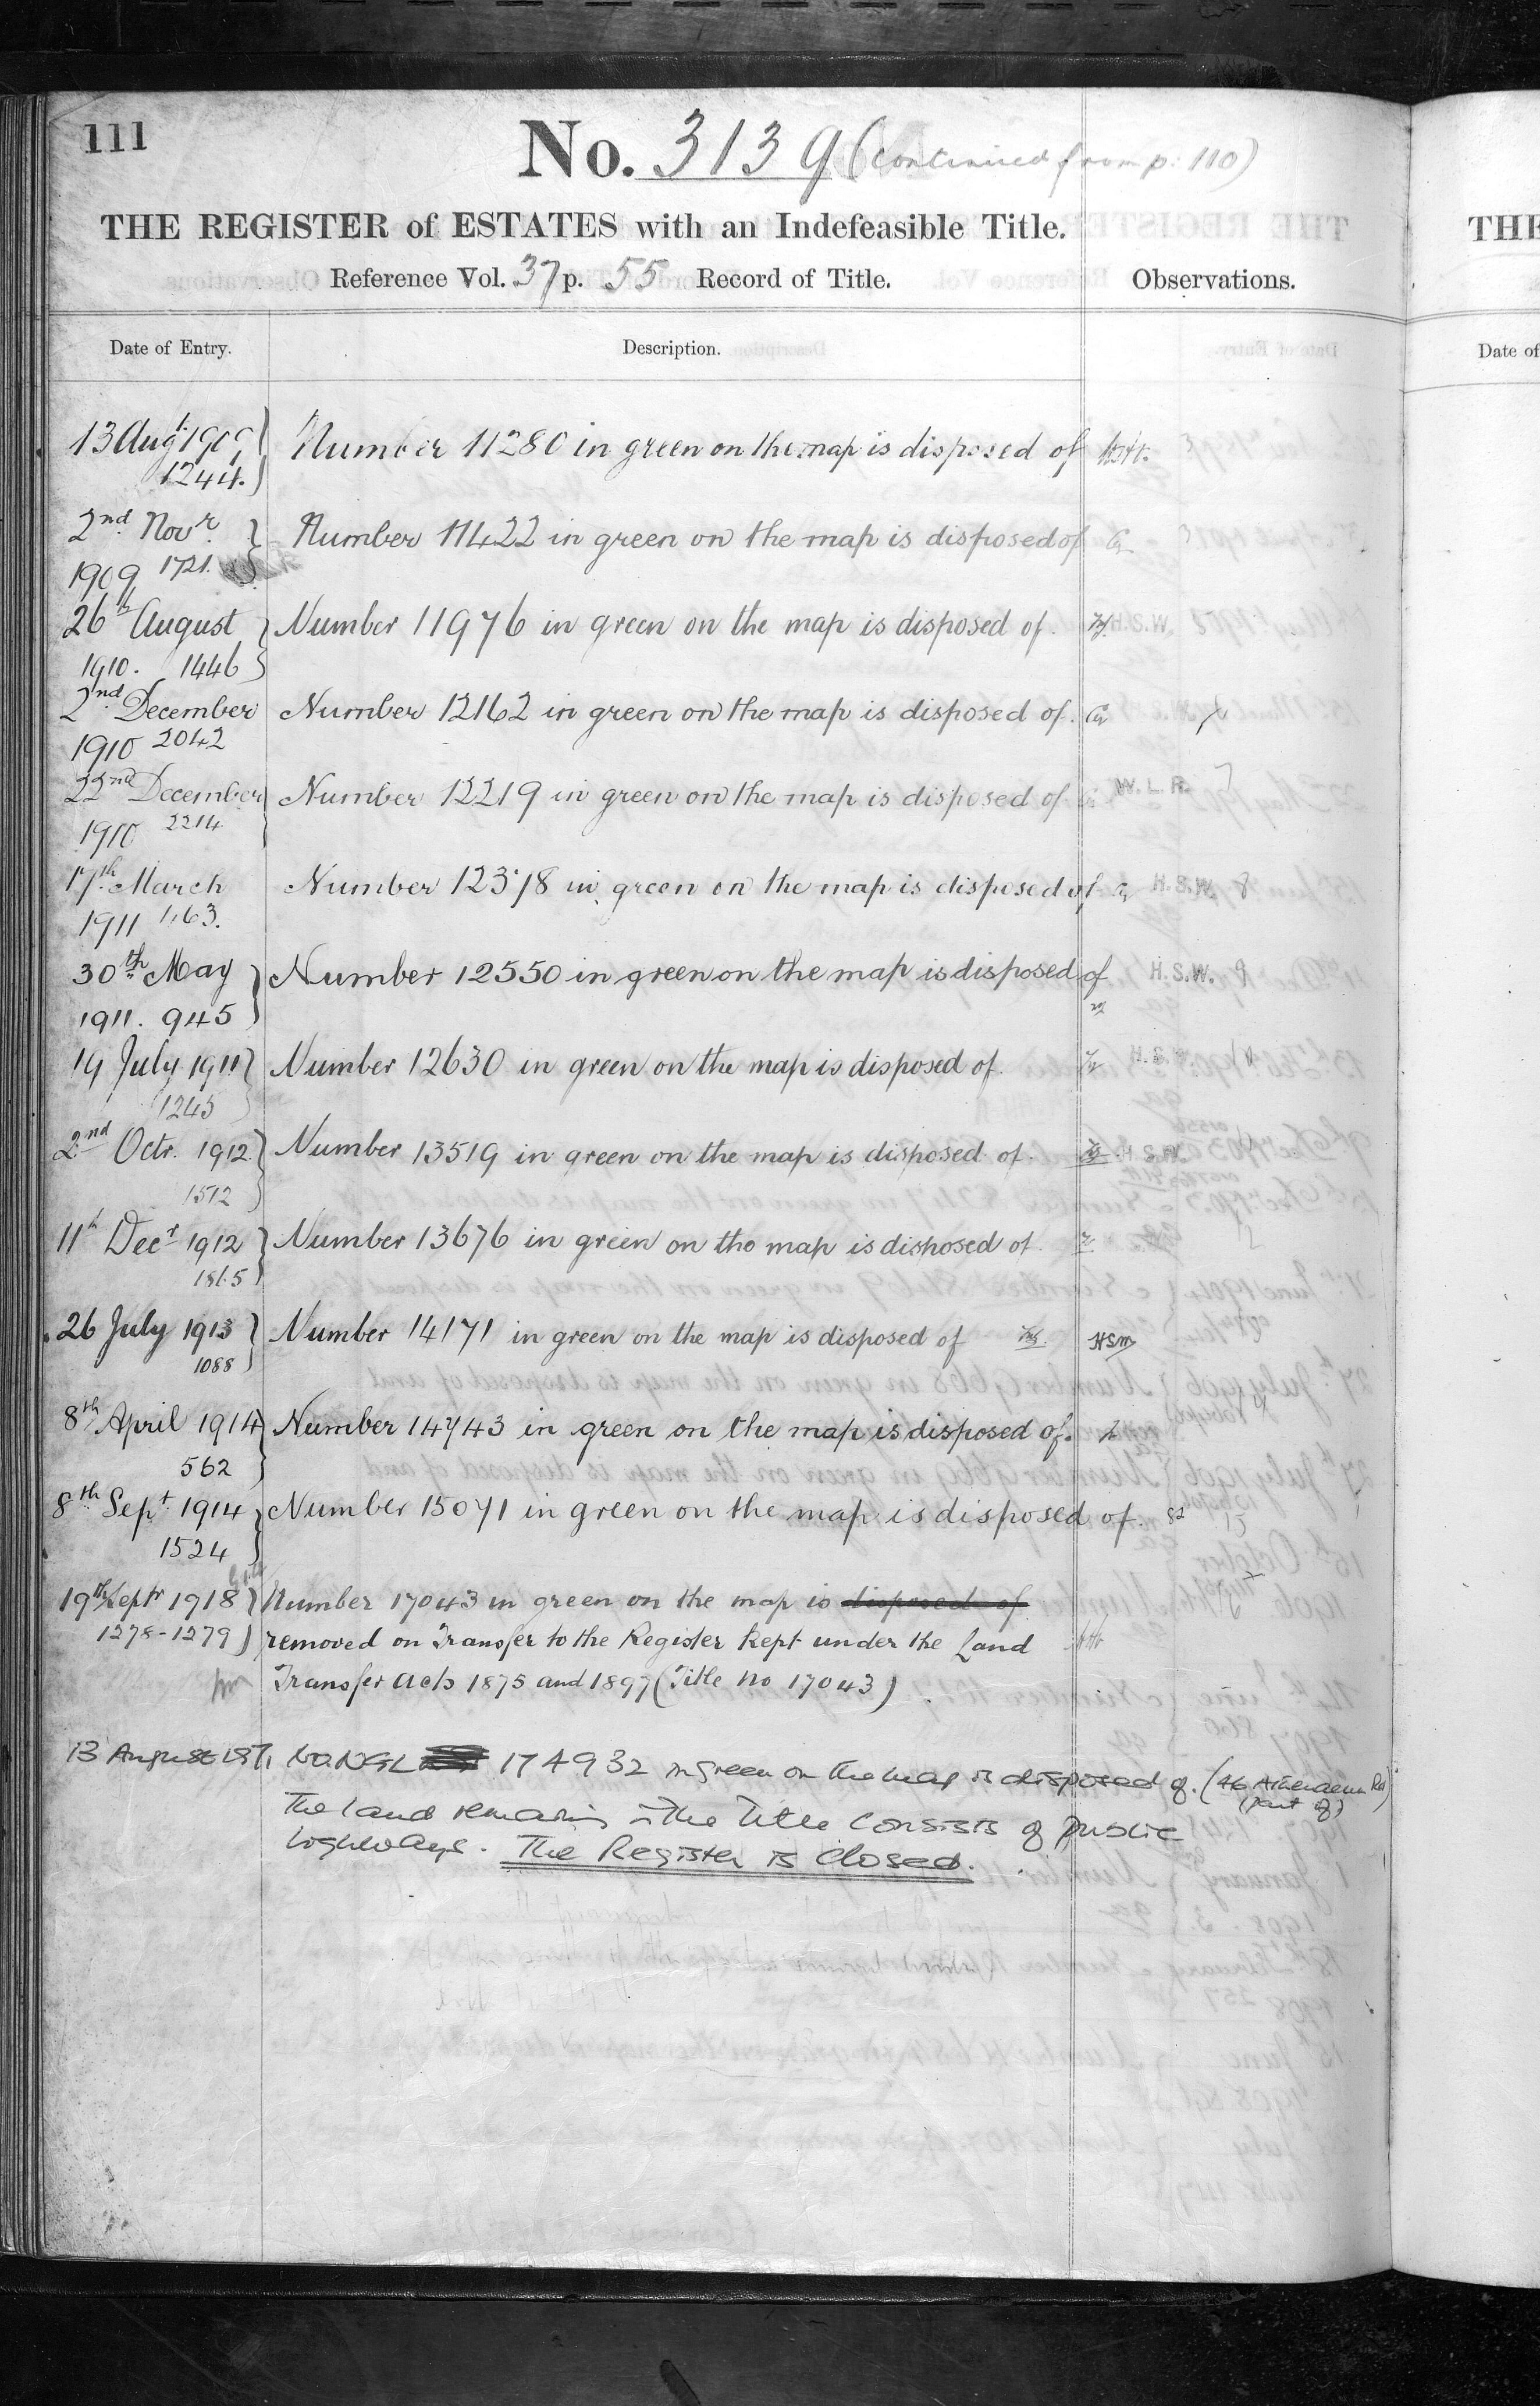 111
No. 3139 (continued from p. 110)
THE REGISTER of ESTATES with an Indefeasible Title.
Reference Vol. 37 p. 55 Record of Title.
Observations.
Date of Entry.
Description.
13 Augt 1909 Number 11280 in green on the map is disposed of
1244.
2nd Novr. Number 11422 in green on the map is disposed of
1909 1721.
26th August Number 11976 in green on the map is disposed of. H.S.W.
1910. 1446
2nd December Number 12162 in green on the map is disposed of.
1910 2042
22nd December Number 12219 in green on the map is disposed of W.L.R.
1910 2214
17th March Number 12378 in green on the map is disposed of H.S.W.
1911 463.
30th May Number 12550 in green on the map is disposed of H.S.W.
1911. 945
19 July 1911 Number 12630 in green on the map is disposed of.
1245
2nd Octr. 1912 Number 13519 in green on the map is disposed of. H.S.W.
1572
11th Decr 1912 Number 13676 in green on the map is disposed of.
1865
26 July 1913 Number 14171 in green on the map is disposed of HSW
1088
8th April 1914 Number 14743 in green on the map is disposed of.
562
8th Sept 1914 Number 15071 in green on the map is disposed of.
1524
19th Septr 1918 Number 17043 in green on the map is disposed of
1278-1279 removed on Transfer to the Register kept under the Land
Transfer Acts 1875 and 1897 (Title No 17043)
13 August 1971 No. NGL 174932 in green on the map is disposed of. (46 Athenaeum Rd)
(part of)
The land remaining in the Title consists of public
highways. The Register is closed.
THE
Date of